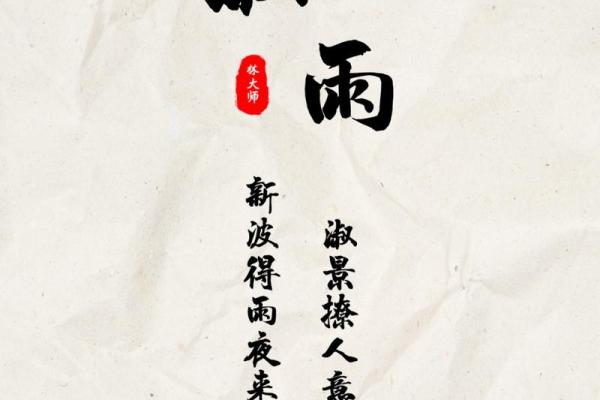 雨
林大师
淑景撩人意
新波得雨夜来